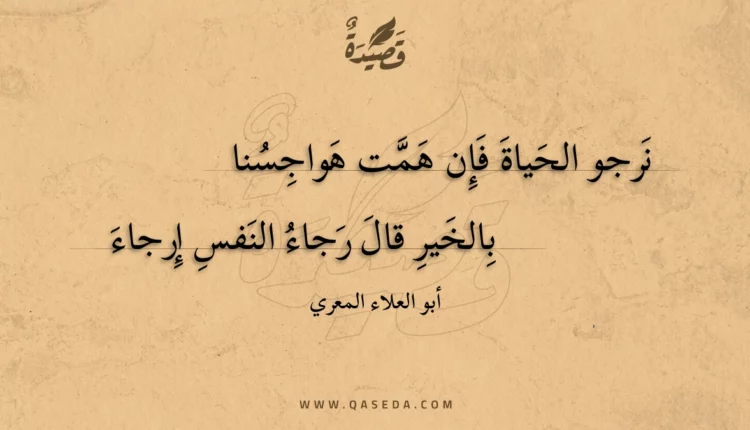 قَصِيدَةٌ
نَرجو الحَياةَ فَإِن هَمَّت هَواجِسُنا
بِالخَيرِ قالَ رَجاءُ النَفسِ إِرجاءَ
أبو العلاء المعري
WWW.QASEDA.COM